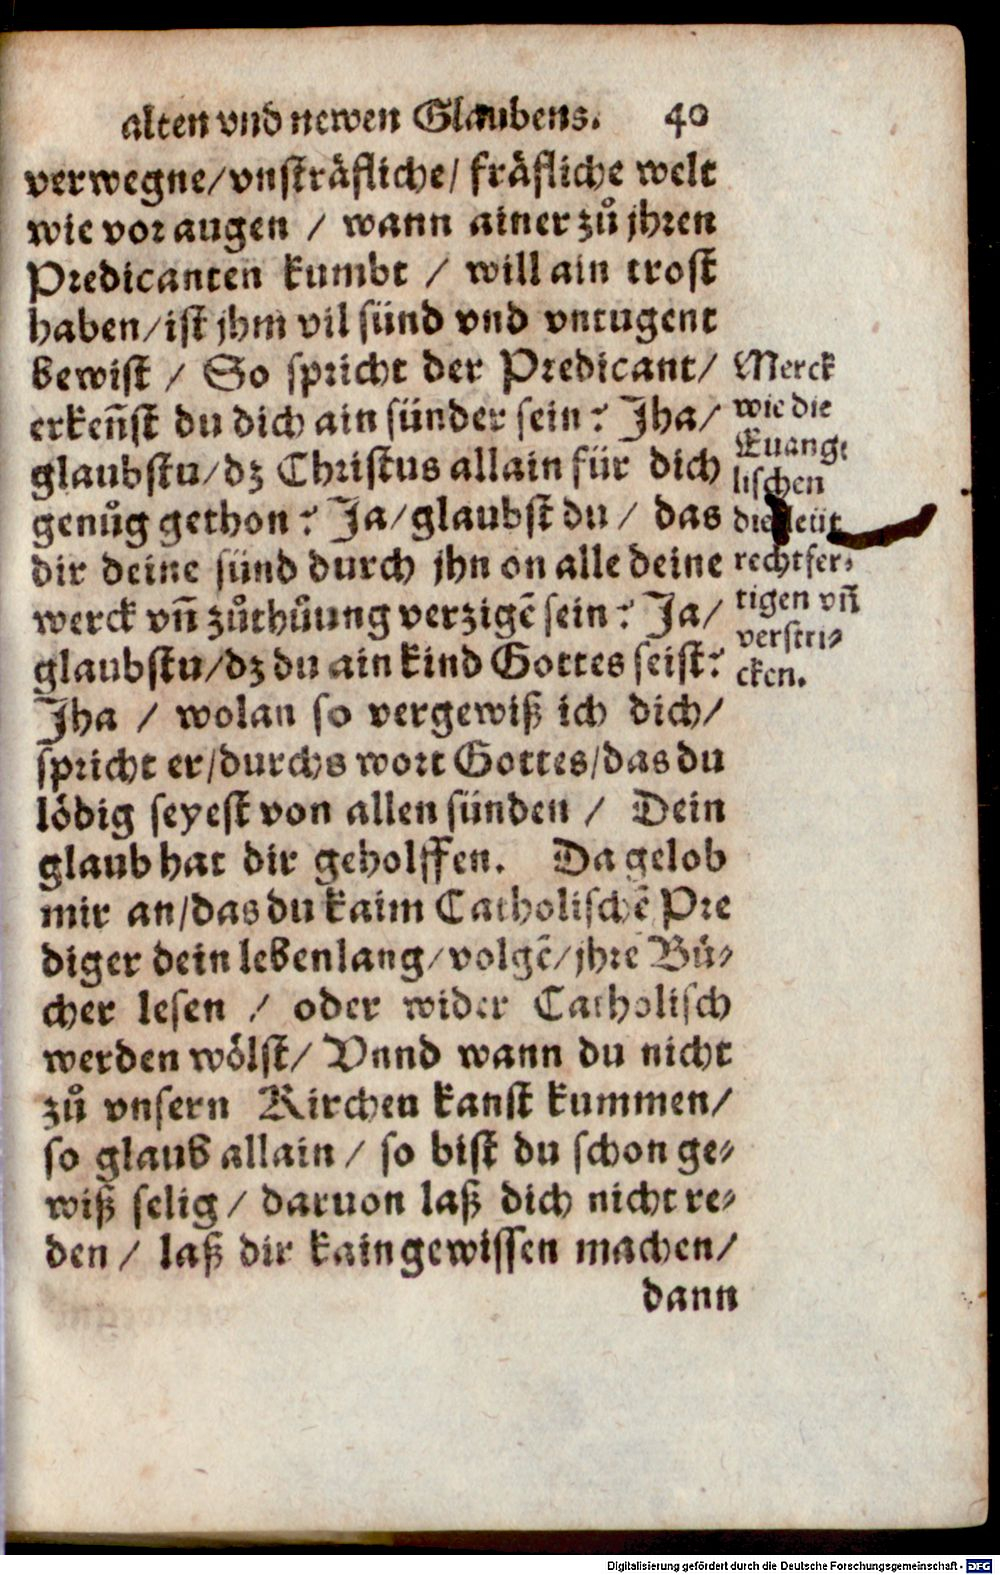 alten vnd newen Glaubens. 40
verwegne/vnsträfliche/ fräfliche welt
wie vor augen / wann ainer zů jhren
Predicanten kumbt / will ain trost
haben/ist jhm vil sünd vnd vntugent
bewist / So spricht der Predicant/
erkeñst du dich ain sünder sein? Jha/
glaubstu/dz Christus allain für dich
genůg gethon? Ja/glaubst du / das
dir deine sünd durch jhn on alle deine
werck vñ zůthůung verzigẽ sein? Ja/
glaubstu/dz du ain kind Gottes seist?
Jha / wolan so vergewiß ich dich/
spricht er/durchs wort Gottes/das du
lödig seyest von allen sünden / Dein
glaub hat dir geholffen. Da gelob
mir an/das du kaim Catholischẽ Pre
diger dein lebenlang/volgẽ/jhre Bü-
cher lesen / oder wider Catholisch
werden wölst/ Vnnd wann du nicht
zů vnsern Kirchen kanst kummen/
so glaub allain / so bist du schon ge-
wiß selig / daruon laß dich nicht re-
den / laß dir kain gewissen machen/
dann
Merck
wie die
Euange
lischen
die leüt
rechtfer-
tigen vñ
verstri-
cken.
Digitalisierung gefördert durch die Deutsche Forschungsgemeinschaft - DFG